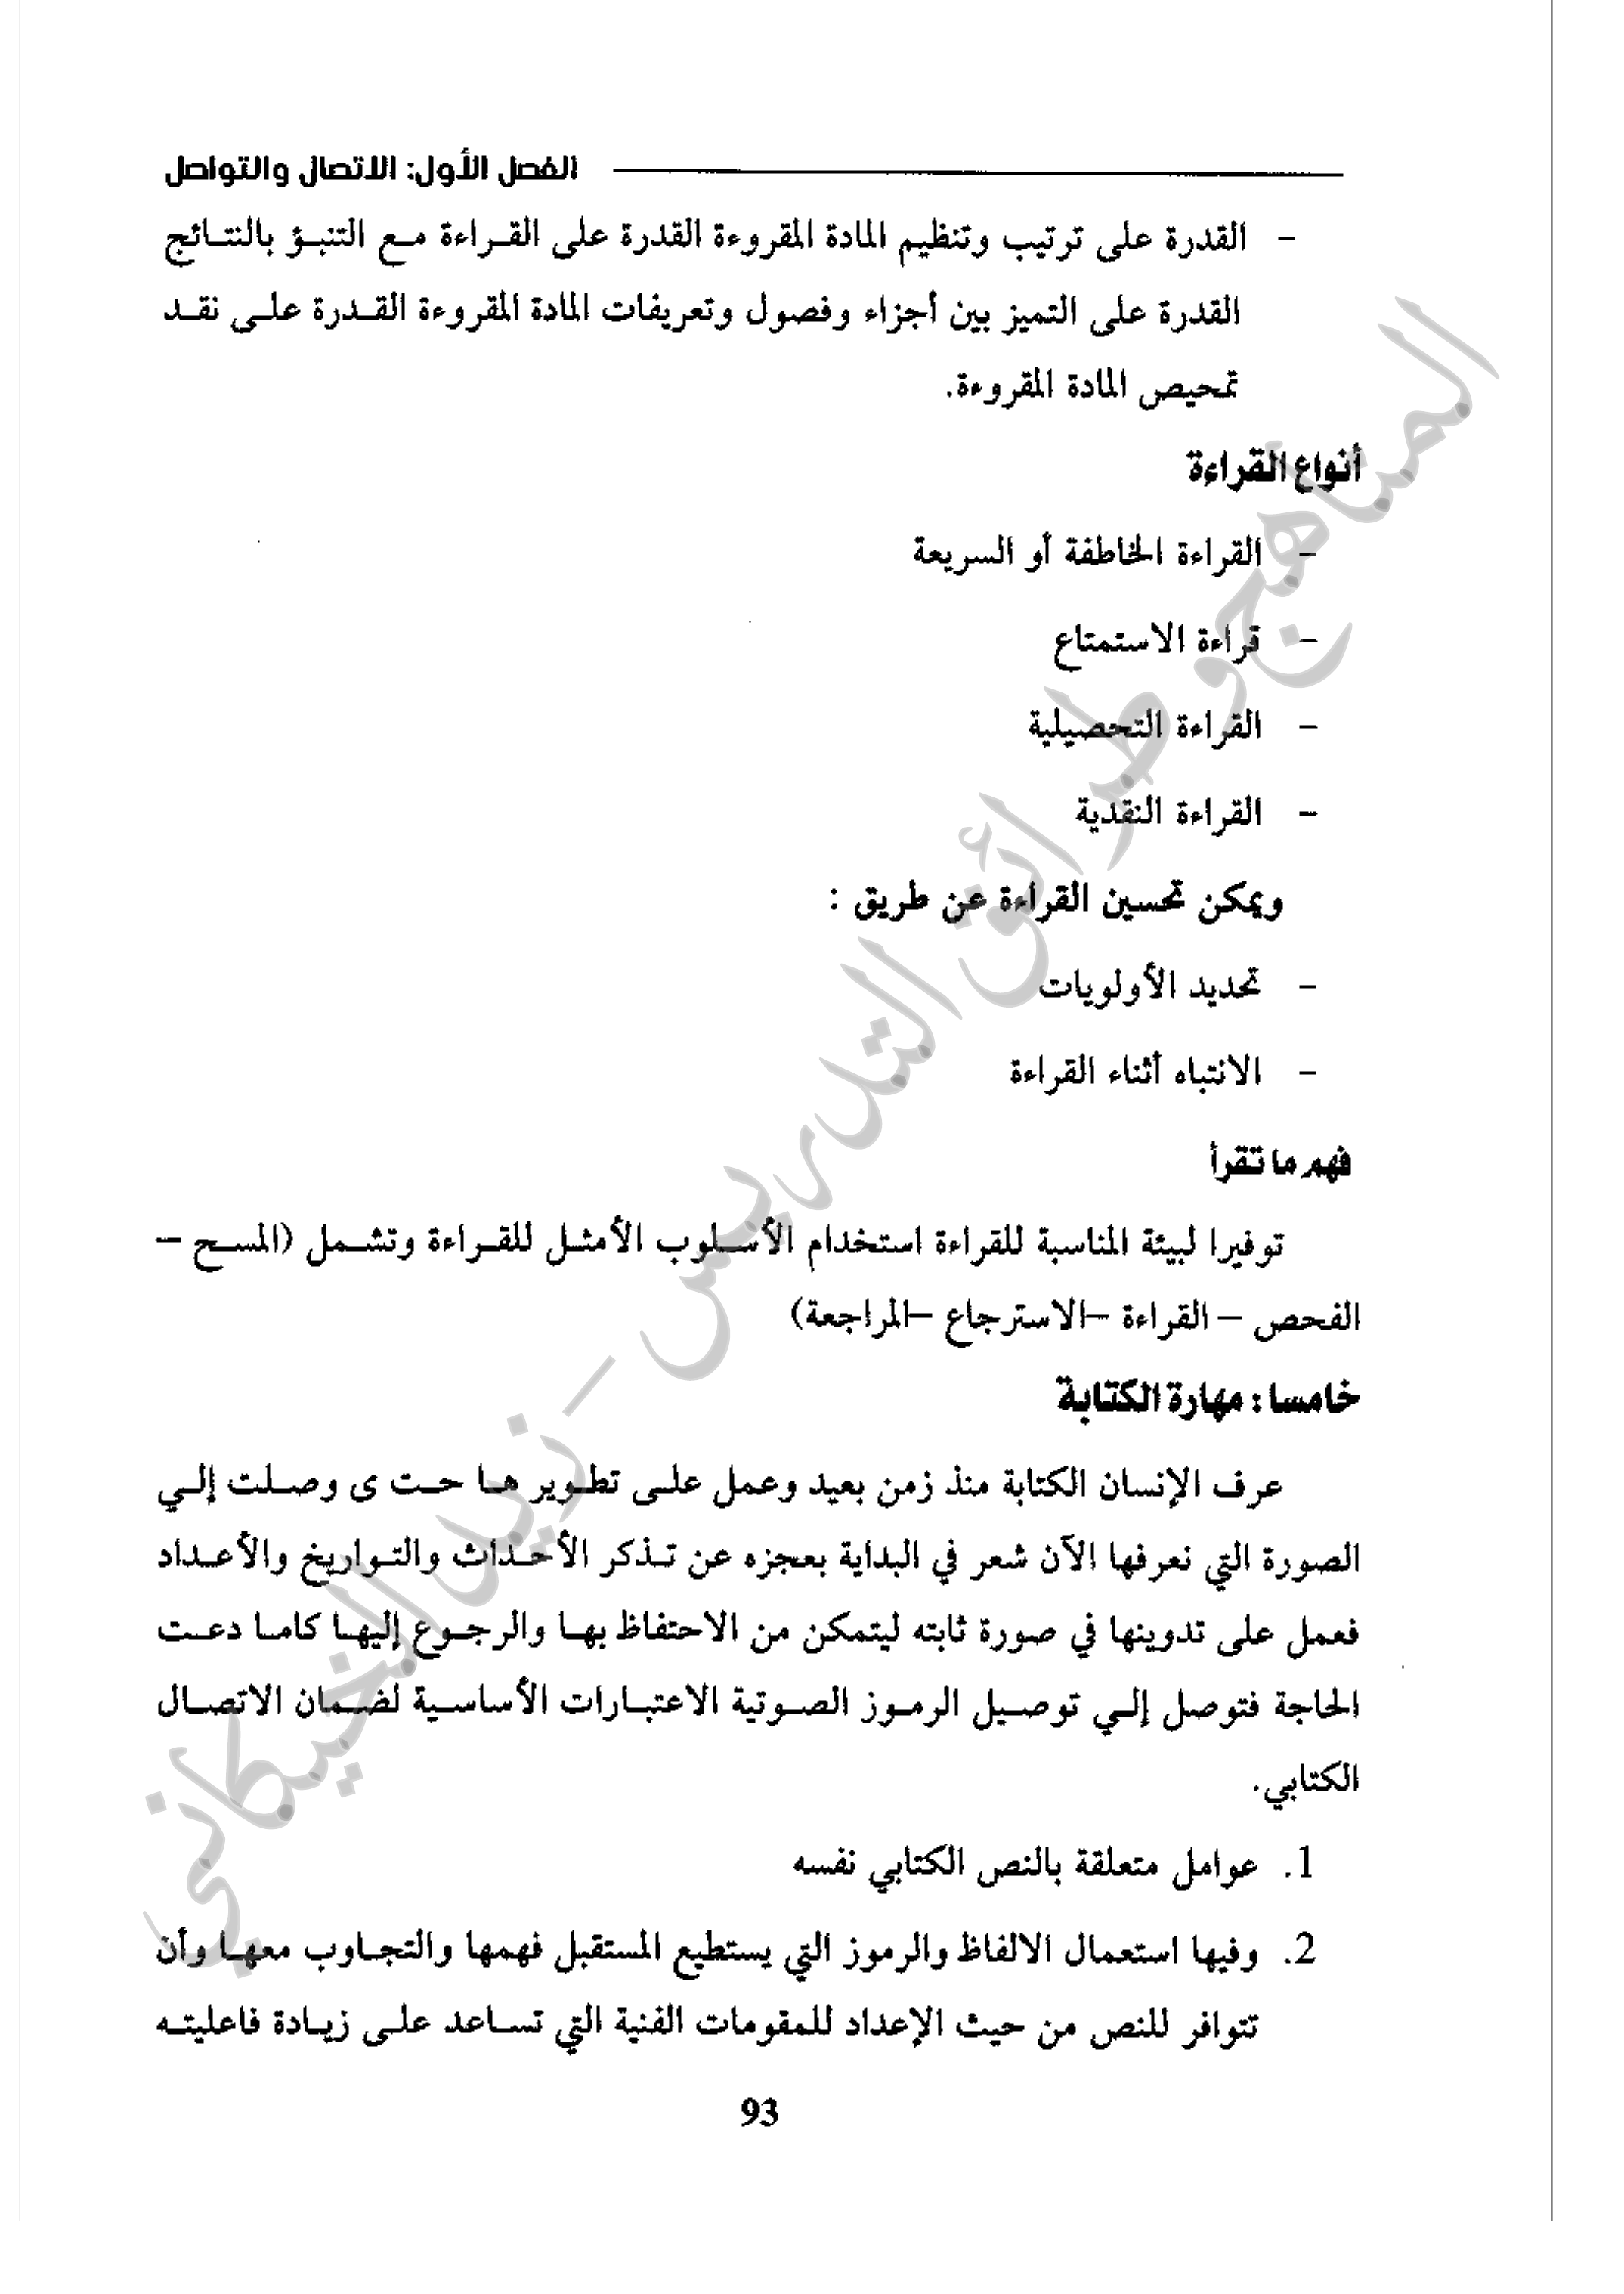 الفصل الأول: الاتصال والتواصل
- القدرة على ترتيب وتنظيم المادة المقروءة القدرة على القراءة مع التنبؤ بالنتائج
القدرة على التميز بين أجزاء وفصول وتعريفات المادة المقروءة القدرة على نقد
تمحيص المادة المقروءة.
أنواع القراءة
- القراءة الخاطفة أو السريعة
- قراءة الاستمتاع
- القراءة التحصيلية
- القراءة النقدية
ويمكن تحسين القراءة عن طريق :
- تحديد الأولويات
- الانتباه أثناء القراءة
فهم ما تقرأ
توفيرا لبيئة المناسبة للقراءة استخدام الأسلوب الأمثل للقراءة وتشمل (المسح –
الفحص – القراءة –الاسترجاع –المراجعة)
خامسا : مهارة الكتابة
عرف الإنسان الكتابة منذ زمن بعيد وعمل على تطوير ها حت ى وصلت إلي
الصورة التي نعرفها الآن شعر في البداية بعجزه عن تذكر الأحداث والتواريخ والأعداد
فعمل على تدوينها في صورة ثابته ليتمكن من الاحتفاظ بها والرجوع إليها كاما دعت
الحاجة فتوصل إلي توصيل الرموز الصوتية الاعتبارات الأساسية لضمان الاتصال
الكتابي.
1. عوامل متعلقة بالنص الكتابي نفسه
2. وفيها استعمال الالفاظ والرموز التي يستطيع المستقبل فهمها والتجاوب معها وأن
تتوافر للنص من حيث الإعداد للمقومات الفنية التي تساعد على زيادة فاعليته
93
المناهج وطرائق التدريس – زيد الخيكاني